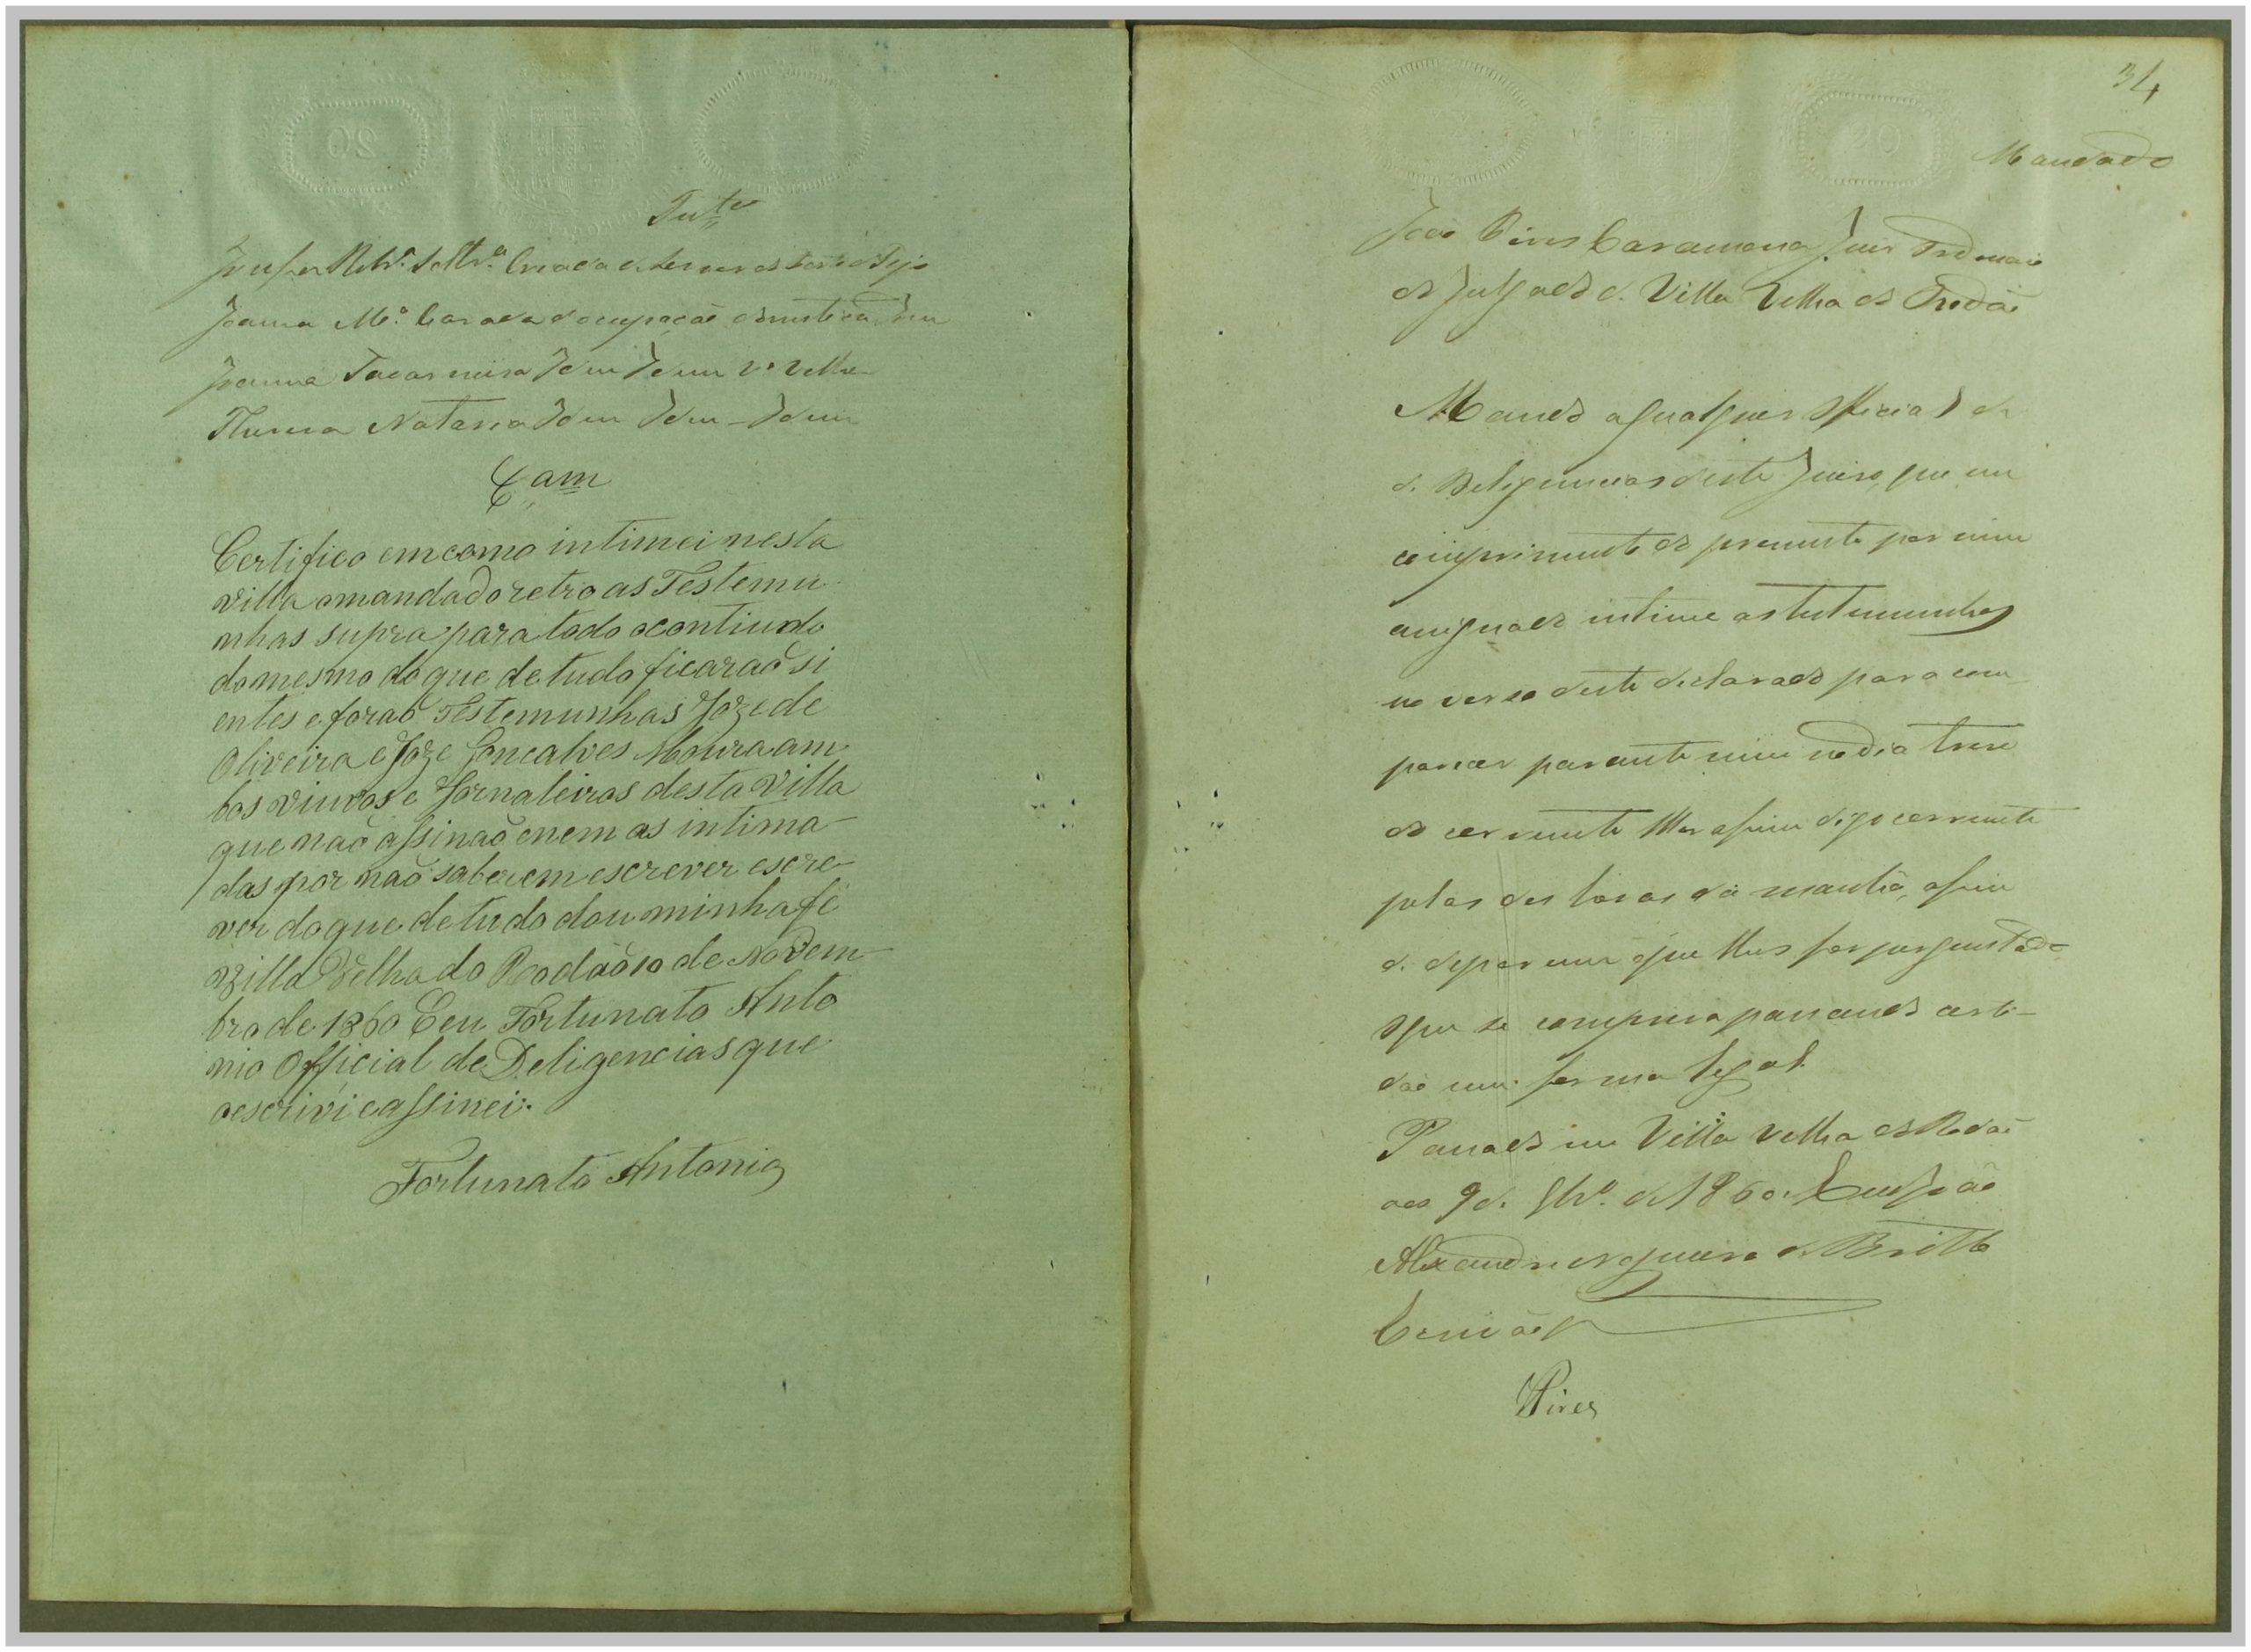 Test.as
Josefa Rib.ª Solt.ª Criada de servir do
Joanna M.ª Casada d'ocupação domestica Idem
Joanna Idem Idem V.ª Velha
Nataria Idem Idem - Idem
C.am
Certifico em como intimei nesta
Villa o mandado retro as Testemu
nhas supra para todo o contiudo
do mesmo do que de tudo ficaraõ si
entes e foraõ Testemunhas Joze de
Oliveira e Joze Goncalves Moura am
bos viuvos e Jornaleiros desta Villa
que naõ assinaõ e nem as intima-
das por naõ saberem escrever escre-
ver do que de tudo dou minha fé
Villa Velha do Rodaõ 10 de Novem-
bro de 1860 E eu Fortunato Anto
nio Official de Deligencias que
o escriví e assinei.
Fortunato Antonio
34
Mandado
João Pires Caramona Juis Ordinario
do Julgado de Villa Velha do Rodão
Mando a qualquer Official de
de Deligencias deste Juiso, que em
comprimento do presente por mim
assignado intime as testemunhas
no verso deste declarado para com
parecer perante mim no dia trese
do corrente Mes assim digo corrente
pelas des horas da manhã, afim
de depor em o que lhes for perguntado
O que se cumpra passando certi-
dão em forma legal.
Passado em Villa Velha do Rodaõ
aos 9 de 9br.º de 1860. E eu João
Alexandre de Britto
Escrivão
Pires